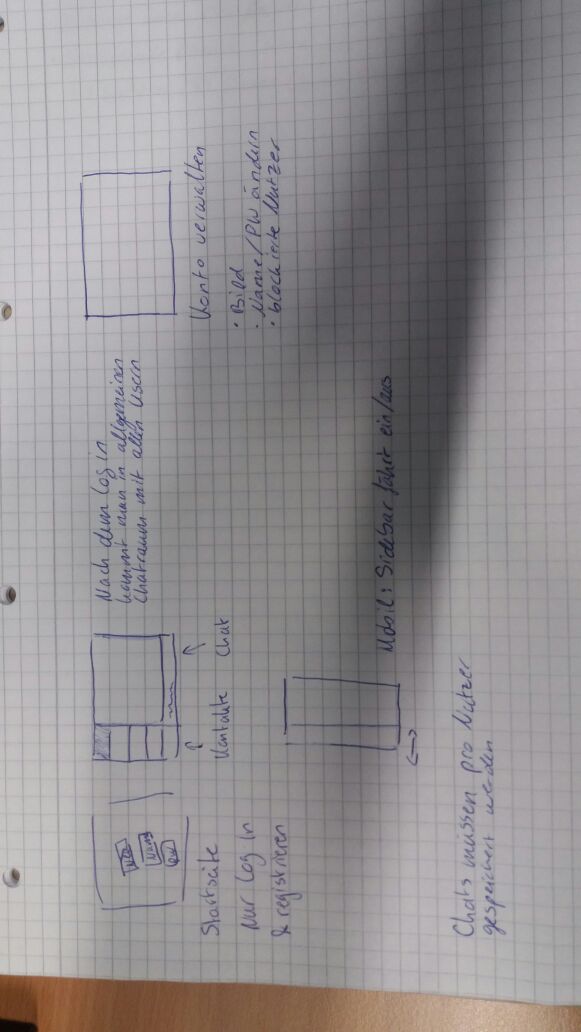 Neu
Name
PW
Startseite
Nur Log in
& registrieren
Kontakte
Chat
Nach dem Log in
kommt man in allgemeinen
Chatraum mit allen Usern
Konto verwalten
• Bild
• Name/PW ändern
• blockierte Nutzer
Mobil: Sidebar fährt ein/aus
Chats müssen pro Nutzer
gespeichert werden